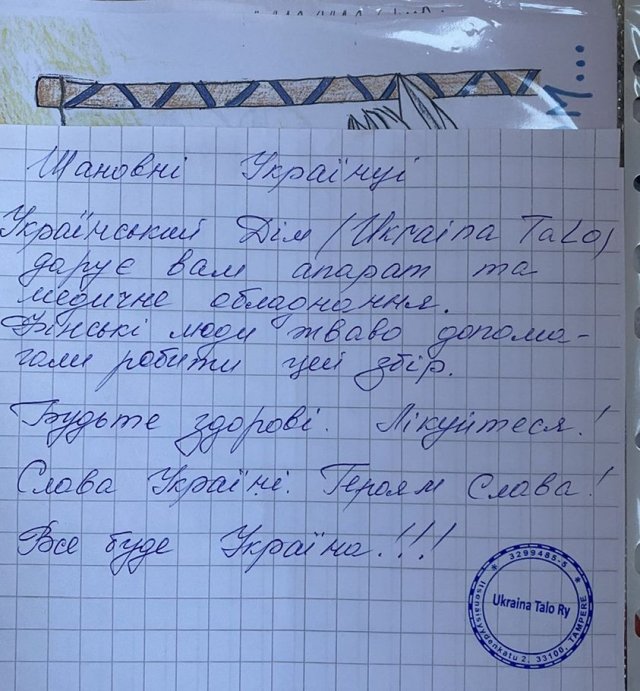 и...
Шановні Українці
Український Дім (Ukraina Talo)
дарує вам апарат та
медичне обладнання.
Фінські люди жваво допома-
гали робити цей збір.
Будьте здорові. Лікуйтеся!
Слава Україні. Героям Слава!
Все буде Україна.!!!
3299485-5
Ukraina Talo Ry
Itsenäisyydenkatu 2, 33100, TAMPERE